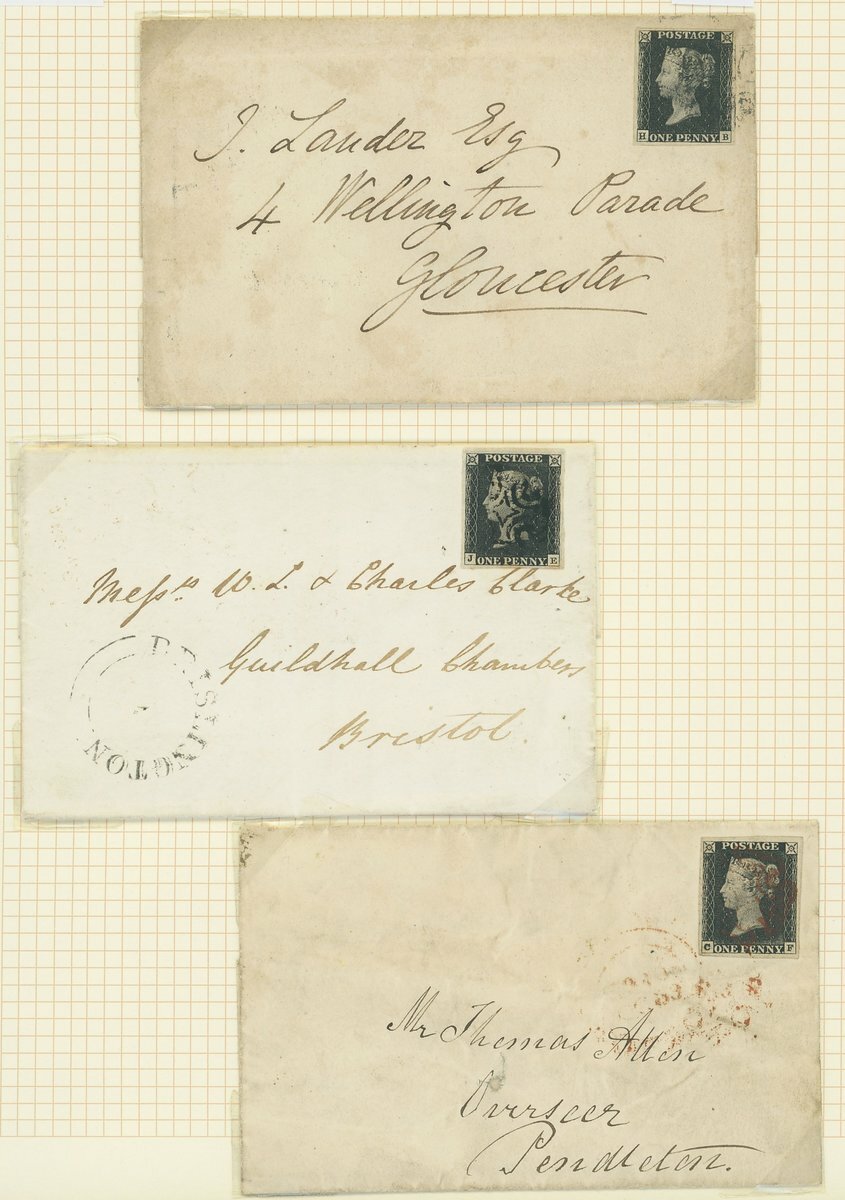 POSTAGE
H ONE PENNY B
J. Lander Esq
4 Wellington Parade
Gloucester
POSTAGE
J ONE PENNY E
Messrs W. L. & Charles Clarke
Guildhall Chambers
Bristol.
BRISLINGTON
POSTAGE
C ONE PENNY F
Mr Thomas Allen
Overseer
Pendleton.